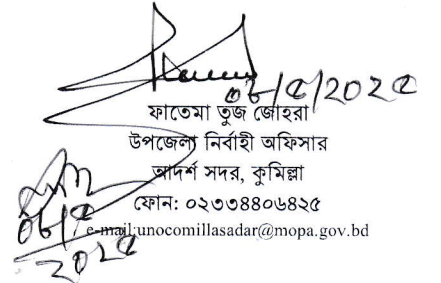 ০৮/৫/২০২৫
ফাতেমা তুজ জোহরা
উপজেলা নির্বাহী অফিসার
আদর্শ সদর, কুমিল্লা
ফোন: ০২৩৩৪৪০৬৪২৫
e-mail:unocomillasadar@mopa.gov.bd
০৮/৫
২০২৫